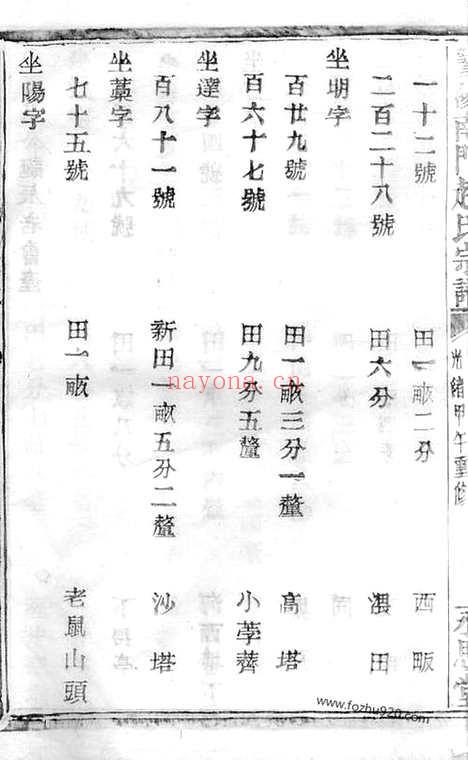 南門趙氏宗譜 光緒甲午重修 永思堂
一十二號 田一畝二分 西畈
二百二十八號 田六分 田
坐明字
百廿九號 田一畝三分一釐 高塔
百六十七號 田九分五釐 小荸薺
坐達字
百八十一號 新田一畝五分二釐 沙塔
坐藁字
七十五號 田一畝 老鼠山頭
坐陽字
nayona.cn
www.fozhu920.com